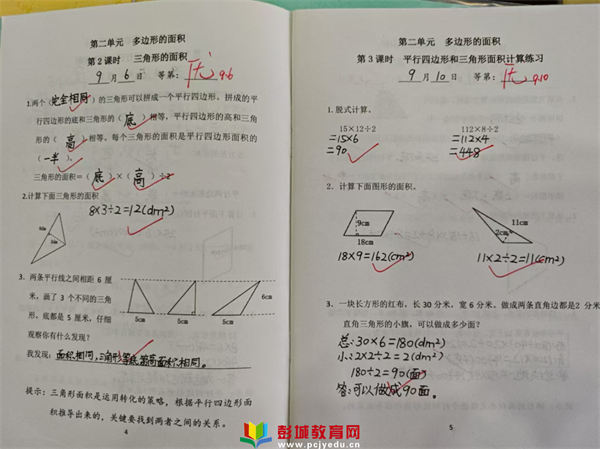 第二单元 多边形的面积
第2课时 三角形的面积
9月6日 等第：优 9.6
1.两个（完全相同）的三角形可以拼成一个平行四边形。拼成的平
行四边形的底和三角形的（底）相等，平行四边形的高和三角
形的（高）相等。每个三角形的面积是平行四边形面积的
（一半）。
三角形的面积=（底）×（高）÷2
2.计算下面三角形的面积
8×3÷2=12(dm²)
3．两条平行线之间相距 6 厘
米，画了 3 个不同的三角
形，底都是 5 厘米，仔细
观察你有什么发现？
5cm 5cm 5cm 6cm
我发现：面积相同,三角形等底等高面积相同。
提示：三角形面积是运用转化的策略，根据平行四边形面
积推导出来的，关键要找到两者之间的关系。
4
第二单元 多边形的面积
第3课时 平行四边形和三角形面积计算练习
9月10日 等第：优 9.10
1．脱式计算。
15×12÷2 112×8÷2
=15×6 =112×4
=90 =448
2．计算下面图形的面积。
9cm 18cm 11cm 2cm
18×9=162(cm²) 11×2÷2=11(cm²)
3．一块长方形的红布，长 30 分米，宽 6 分米。做成两条直角边都是2 分米
直角三角形的小旗，可以做成多少面？
总:30×6=180(dm²)
小:2×2÷2=2(dm²)
180÷2=90(面)
答:可以做成90面。
5
彭城教育网
www.pcjyedu.cn